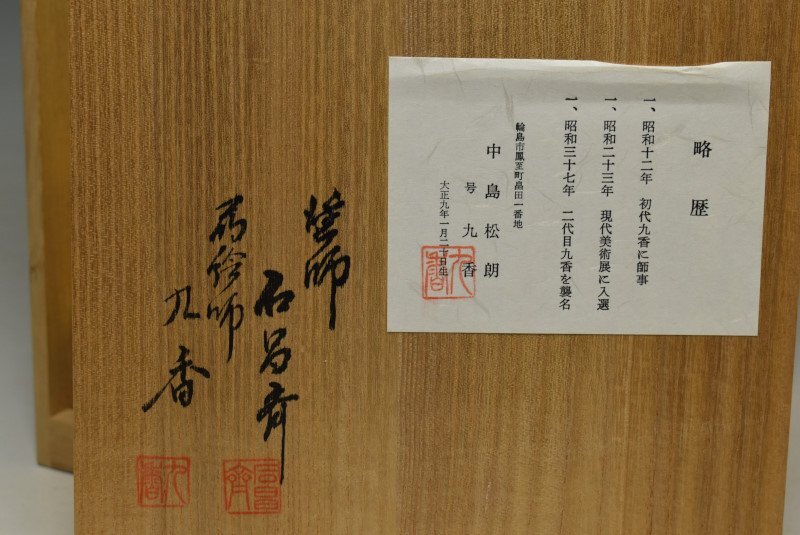 略歴
一、昭和十二年 初代九香に師事
一、昭和二十三年 現代美術展に入選
一、昭和三十七年 二代目九香を襲名
輪島市鳳至町畠田一番地
中島松朗
号 九香
大正九年一月二十日生
九香
塗師
石昌斉
蒔絵師
九香
九香